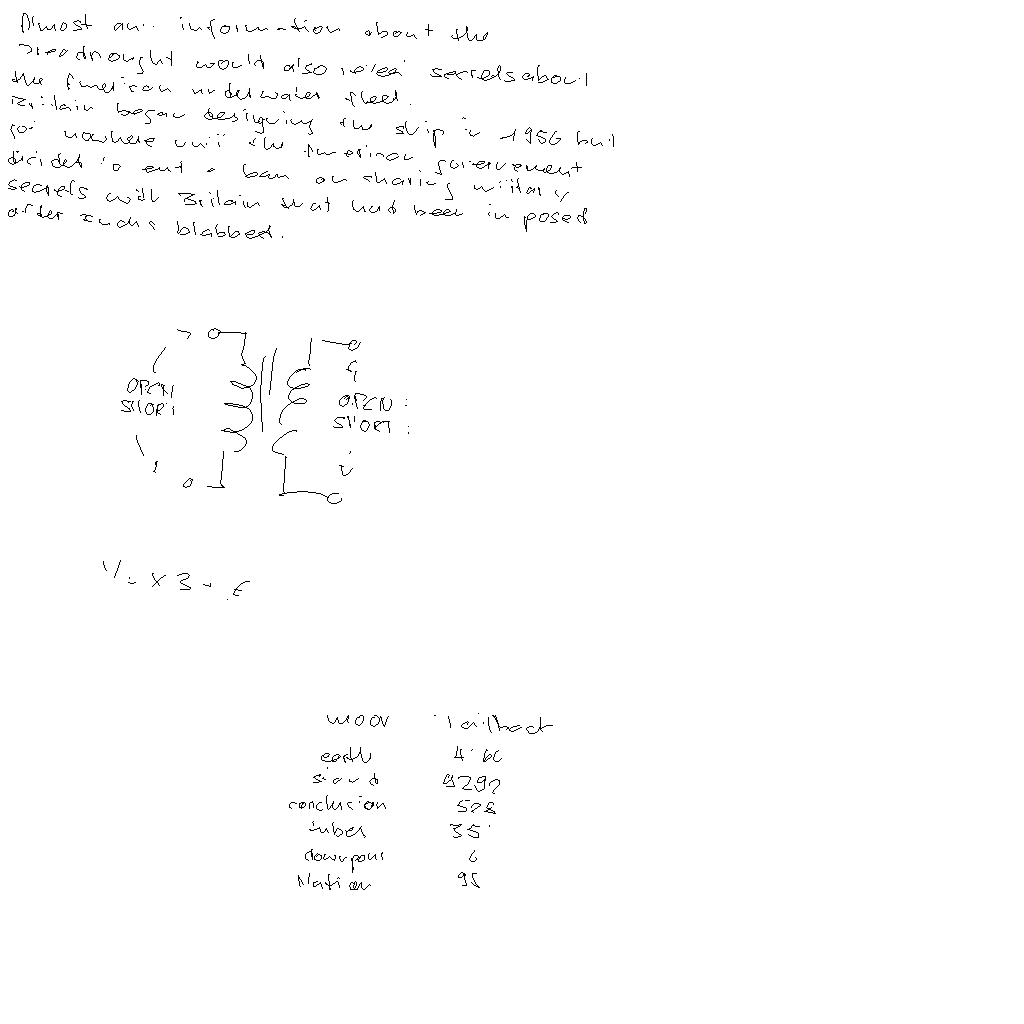 Almost any information about the
Dreadnought would also reveal secrets about
the American underwater fleet.
Britain began designing the ship in 1956 but
got nowhere until the American government
decided to end a ban on sharing military
secrets with Britain that had been imposed
after Fuchs blabbed.
OPEN
SHORT
OPEN :
SHORT :
moon tailboat
earth
9292
conclusion 528
tubes 35
downpour 6
Nation 95